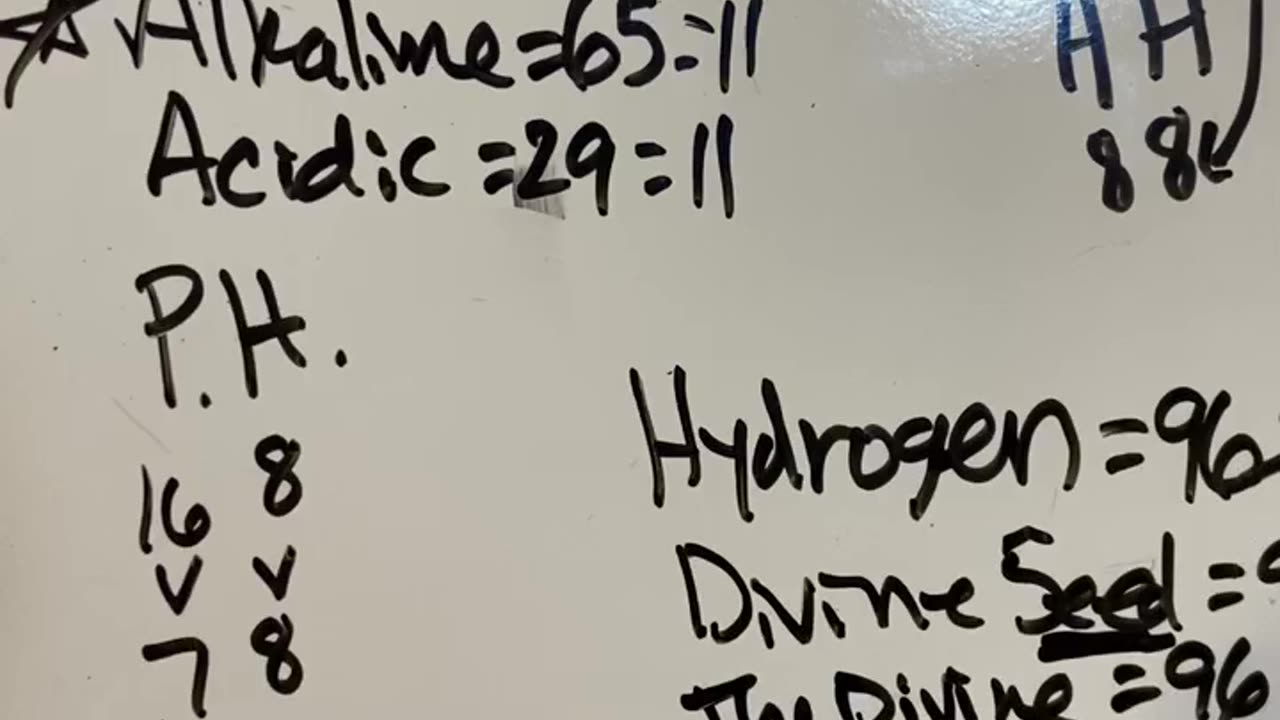 Alkaline=65=11
Acidic=29=11
A H
8 8
P.H.
16 8
7 8
Hydrogen=96
Divine Seed=9
The Divine=96